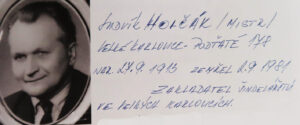 LUDVÍK HOLČÁK / MISTR /
VELKÉ KARLOVICE - PODŤATÉ
NAR. 24.9.1913 ZEMŘEL 8.9.1981
ZAKLADATEL ŠINDELÁŘSTVÍ
VE VELKÝCH KARLOVICÍCH.